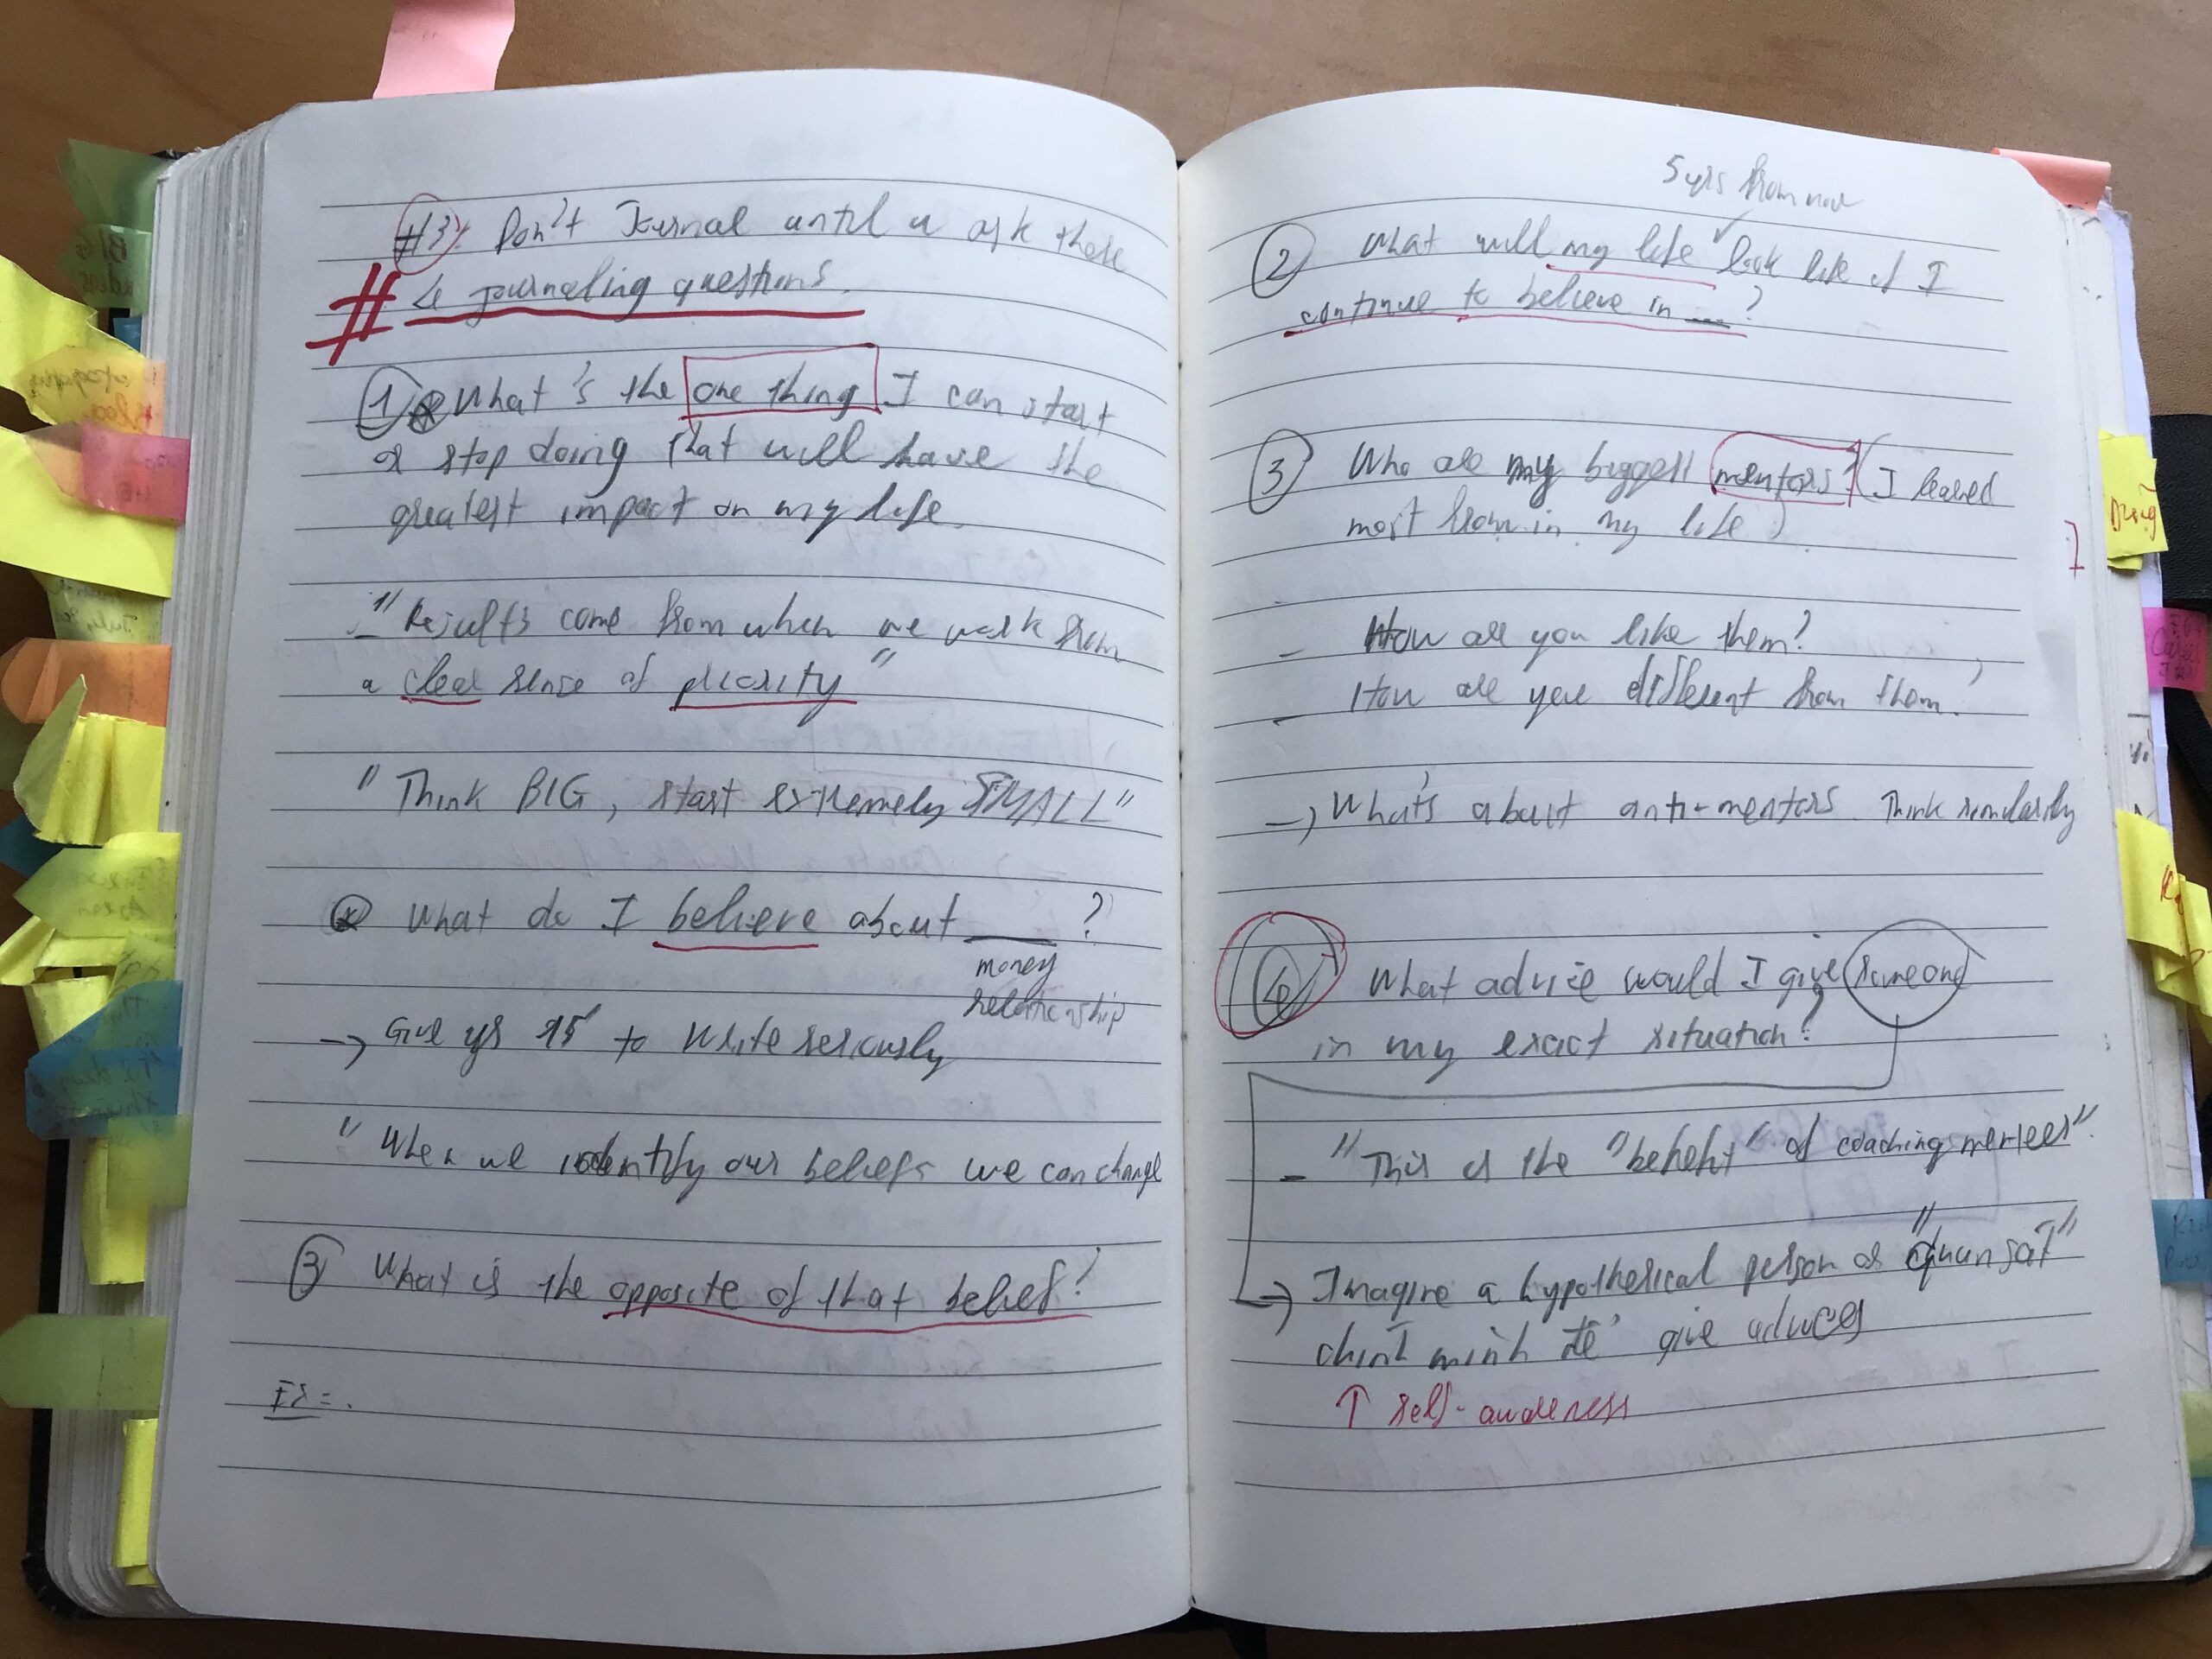 #3: Don't Journal until u ask these
# 4 journaling questions.
① What's the one thing I can start
or stop doing that will have the
greatest impact on my life.
- "Results come from when we work from
a clear sense of priority"
"Think BIG, start extremely SMALL"
What do I believe about ___ ?
money
relationship
→ Give to write seriously
"When we identify our beliefs we can change
③ What is the opposite of that belief?
EX = .
5 yrs from now
② What will my life ✓ look like if I
continue to believe in __ ?
③ Who are my biggest mentors? (I learned
most from in my life)
- How are you like them?
- How are you different from them?
→ What's about anti-mentors. Think similarly
④ What advice would I give someone
in my exact situation?
- "This is the "benefit" of coaching".
→ Imagine a hypothetical person or "quan sát"
chính mình để give advices
↑ self-awareness